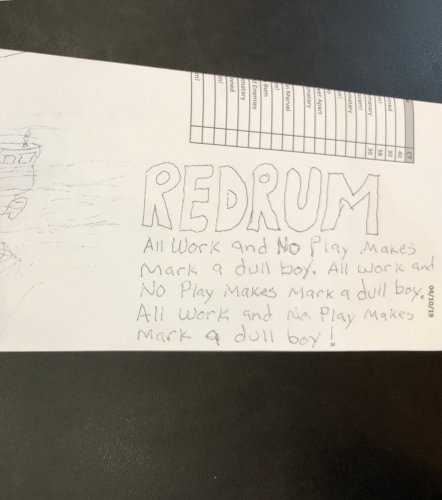 REDRUM
All Work and No Play Makes
Mark a dull boy. All work and
No Play Makes Mark a dull boy.
All Work and No Play Makes
Mark a dull boy!
04/10/19
CT
40
30
38
30
Marvel
Bum
Enemies